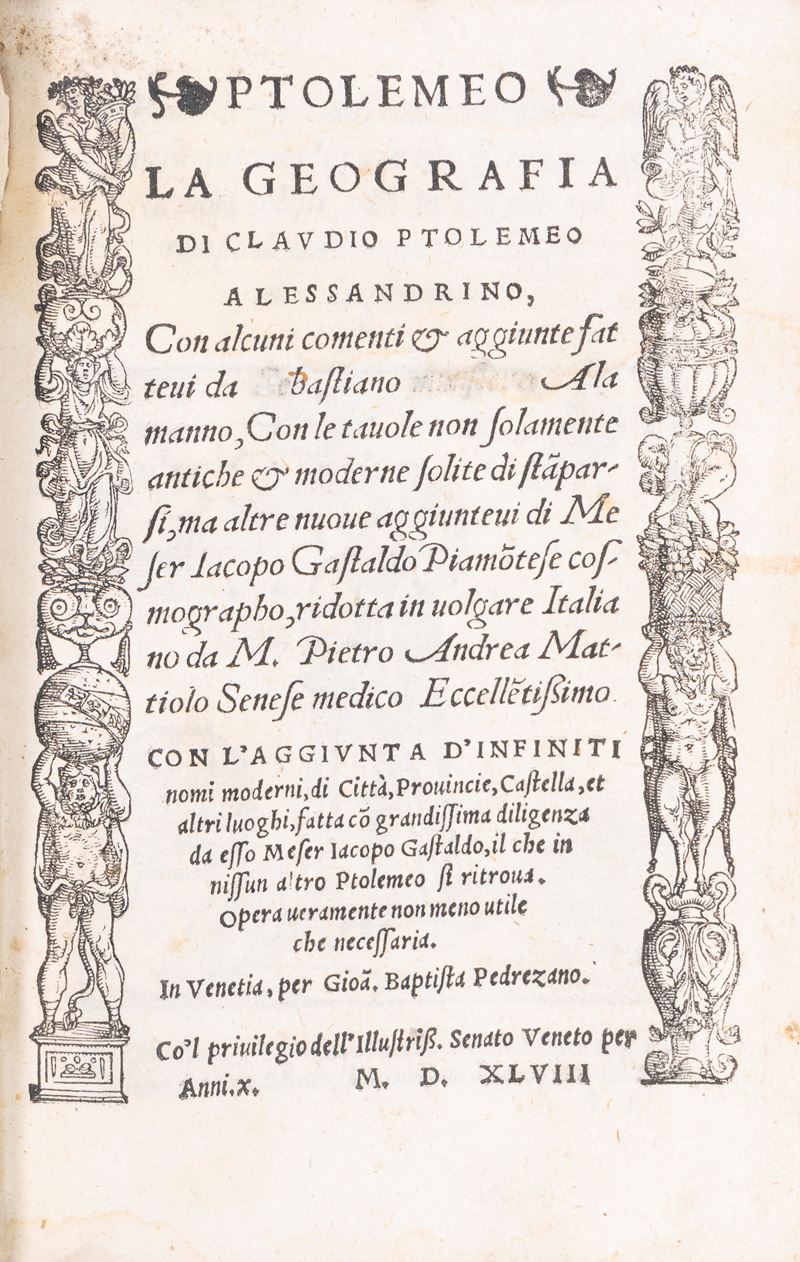 PTOLEMEO
LA GEOGRAFIA
DI CLAVDIO PTOLEMEO
ALESSANDRINO,
Con alcuni comenti & aggiunte fat
teui da Sebastiano Ala
manno, Con le tauole non ſolamente
antiche & moderne ſolite di ſtãpar-
ſi, ma altre nuoue aggiunteui di Me
ſer Iacopo Gaſtaldo Piamõteſe coſ-
mographo, ridotta in uolgare Italia
no da M. Pietro Andrea Mat-
tiolo Seneſe medico Eccellẽtiſſimo.
CON L'AGGIVNTA D'INFINITI
nomi moderni, di Città, Prouincie, Caſtella, et
altri luoghi, fatta cõ grandiſſima diligenza
da eſſo Meſer Iacopo Gaſtaldo, il che in
niſſun altro Ptolemeo ſi ritroua.
Opera ueramente non meno utile
che neceſſaria.
In Venetia, per Gioã. Baptiſta Pedrezano.
Co'l priuilegio dell'Illuſtriß. Senato Veneto per
Anni.x. M. D. XLVIII